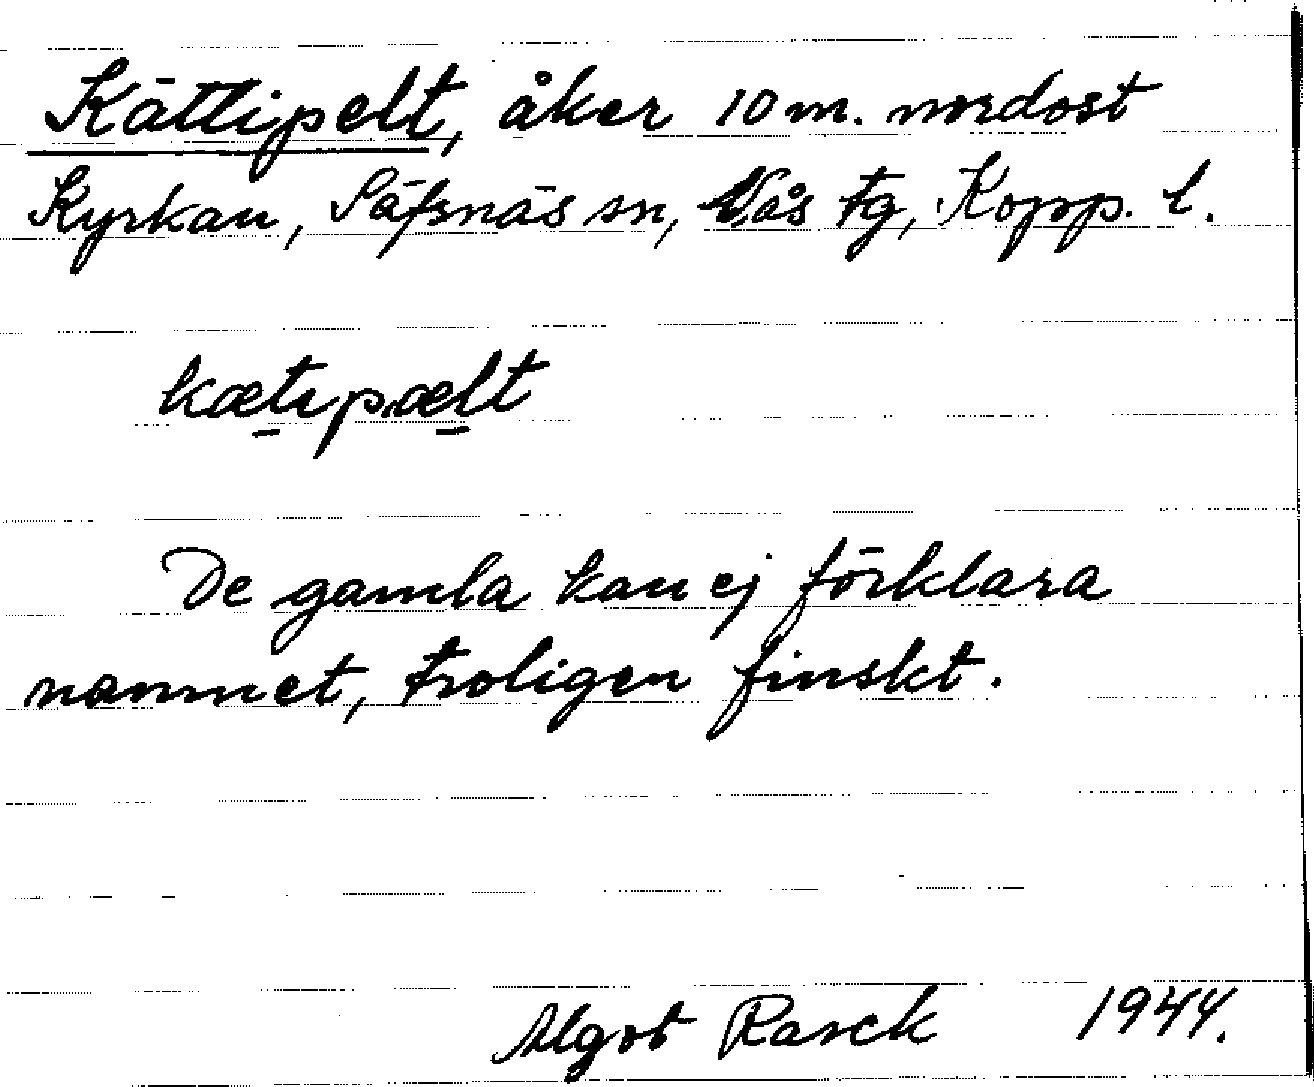 Kättipelt, åker 10 m. nordost
Kyrkan, Säfsnäs sn, Nås tg, Kopp. l.
kætıpælt
De gamla kan ej förklara
namnet, troligen finskt.
Algot Rasck 1944.